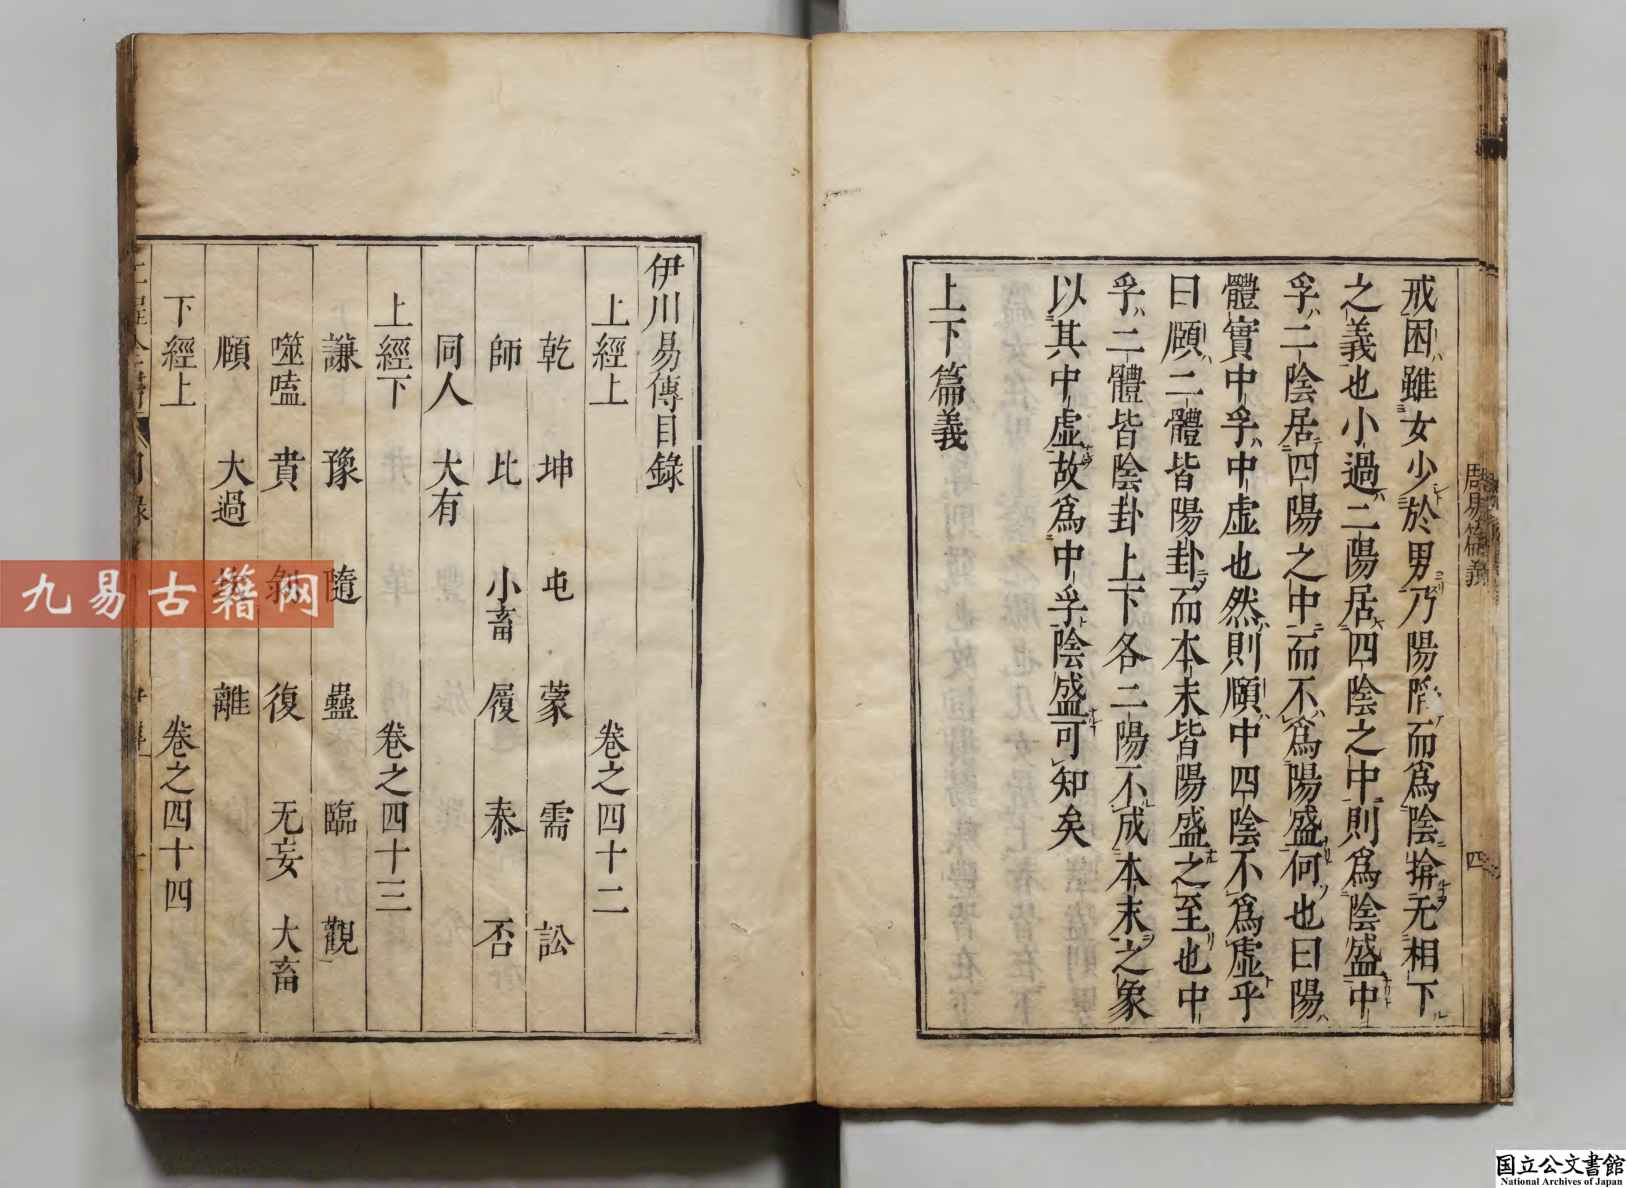 戒困雖女少於男乃陽陷而爲陰揜无相下
之義也小過二陽居四陰之中則爲陰盛中
孚二陰居四陽之中而不爲陽盛何也曰陽
體實中孚中虛也然則頤中四陰不爲虛乎
曰頤二體皆陽卦而本末皆陽盛之至也中
孚二體皆陰卦上下各二陽不成本末之象
以其中虛故爲中孚陰盛可知矣
上下篇義
周易篇義
四
伊川易傳目錄
上經上 卷之四十二
乾 坤 屯 蒙 需 訟
師 比 小畜 履 泰 否
同人 大有
上經下 卷之四十三
謙 豫 隨 蠱 臨 觀
噬嗑 賁 剝 復 无妄 大畜
頤 大過 離
下經上 卷之四十四
九易古籍网
国立公文書館
National Archives of Japan